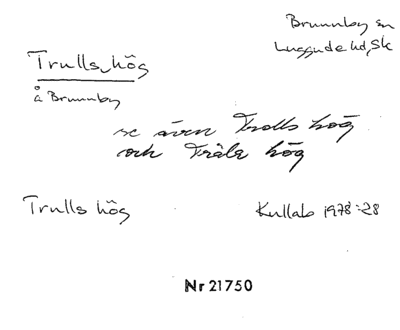 Brunnby sn
Luggude hd, Sk
Trulls hög
å Brunnby
se även Trolls hög
och Tråls hög
Trulls hög
Kullab 1978:28
Nr 21750